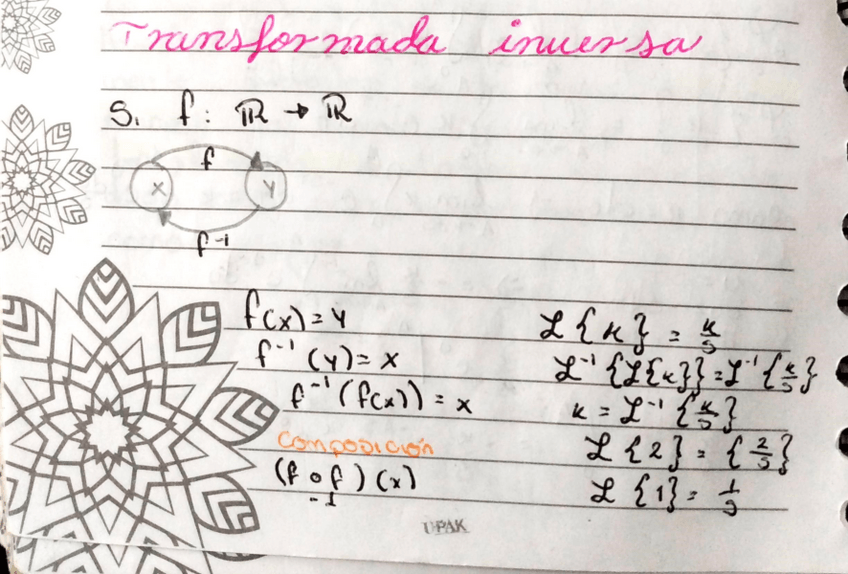 Transformada inversa
Si f: ℝ → ℝ
f
x y
f⁻¹
f(x) = y
f⁻¹ (y) = x
f⁻¹ (f(x)) = x
Composición
(f o f) (x)
-1
ℒ {k} = k/s
ℒ⁻¹ {ℒ{k}} = ℒ⁻¹ {k/s}
k = ℒ⁻¹ {k/s}
ℒ {2} = {2/s}
ℒ {1} = 1/s
UPAK